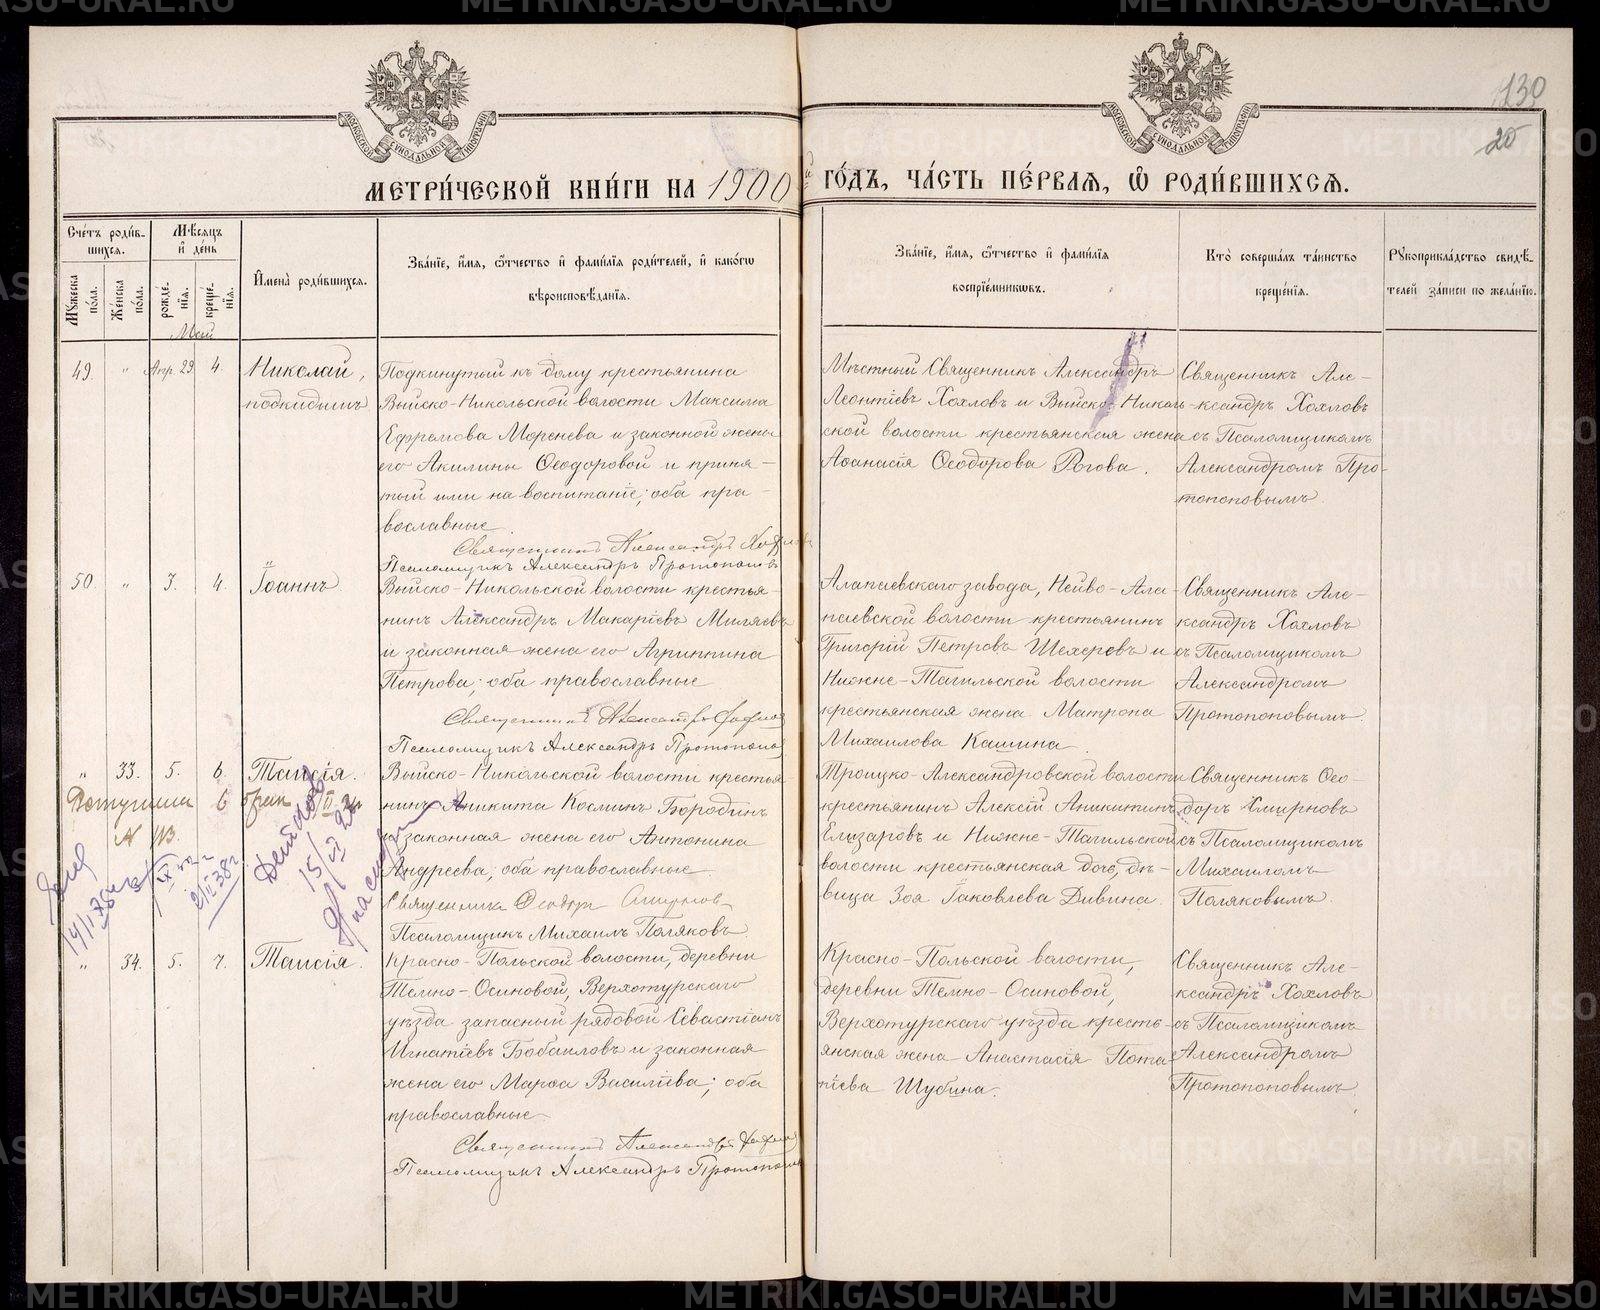 130
20
МОСКОВСКОЙ СѴНОДАЛЬНОЙ ТИПОГРАФІИ
МОСКОВСКОЙ СѴНОДАЛЬНОЙ ТИПОГРАФІИ
МЕТРИ́ЧЕСКОЙ КНИ́ГИ НА 1900 й ГО́ДЪ, ЧА́СТЬ ПЕ́РВАѦ, Ѽ РОДИ́ВШИХСѦ.
Сче́тъ роди́в-
шихсѧ.
Мѣ́сѧцъ
и҆ де́нь
Мꙋ́жеска
по́ла.
Же́нска
по́ла.
рожде́-
нїѧ.
креще́-
нїѧ.
И҆мена̀ роди́вшихсѧ.
Зва́нїе, и҆́мѧ, ѻ҆́тчество и҆ фами́лїѧ роди́телей, и҆ како́гѡ
вѣроисповѣ́данїѧ.
Зва́нїе, и҆́мѧ, ѻ҆́тчество и҆ фами́лїѧ
воспрїе́мникѡвъ.
Кто̀ соверша́лъ та́инство
креще́нїѧ.
Рꙋкоприкла́дство свидѣ́-
телей за́писи по жела́нїю.
Май
49. " Апр. 29 4. Николай,
подкидышъ
Подкинутый къ дому крестьянина
Выйско-Никольской волости Максима
Ефремова Моренева и законной жены
его Акилины Ѳеодоровой и приня-
тый ими на воспитаніе; оба пра-
вославные
Священникъ Александръ Хохловъ
Псаломщикъ Александръ Протопоповъ
Мѣстный Священникъ Александръ
Леонтіевъ Хохловъ и Выйско-Николь-
ской волости крестьянская жена
Аѳанасія Ѳеодорова Рогова.
Священникъ Але-
ксандръ Хохловъ
съ Псаломщикомъ
Александромъ Про-
топоповымъ.
50 " 3. 4. Іоаннъ
Выйско-Никольской волости крестья-
нинъ Александръ Макаріевъ Миляевъ
и законная жена его Агриппина
Петрова; оба православные
Священникъ Александръ Хохловъ
Псаломщикъ Александръ Протопоповъ
Алапаевскаго завода, Нейво-Ала-
паевской волости крестьянинъ
Григорій Петровъ Шехеревъ и
Нижне-Тагильской волости
крестьянская жена Матрона
Михаилова Кашина.
Священникъ Але-
ксандръ Хохловъ
съ Псаломщикомъ
Александромъ
Протопоповымъ.
" 33. 5. 6. Таисія.
Выйско-Никольской волости крестья-
нинъ Аникита Косминъ Бородинъ
и законная жена его Антонина
Андреева; оба православные.
Священникъ Ѳеодоръ Смирновъ
Псаломщикъ Михаилъ Поляковъ.
Троицко-Александровской волости
крестьянинъ Алексій Аникитинъ
Елизаровъ и Нижне-Тагильской
волости крестьянская дочь, дѣ-
вица Зоя Іаковлева Дивина.
Священникъ Ѳео-
доръ Смирновъ
съ Псаломщикомъ
Михаиломъ
Поляковымъ.
" 34. 5. 7. Таисія.
Красно-Польской волости, деревни
Темно-Осиновой, Верхотурскаго
уѣзда запасный рядовой Севастіанъ
Игнатіевъ Бобаиловъ и законная
жена его Марѳа Василіева; оба
православные
Священникъ Александръ Хохловъ
Псаломщикъ Александръ Протопоповъ
Красно-Польской волости,
деревни Темно-Осиновой,
Верхотурскаго уѣзда кресть-
янская жена Анастасія Пота-
піева Шубина.
Священникъ Але-
ксандръ Хохловъ
съ Псаломщикомъ
Александромъ
Протопоповымъ.
METRIKI.GASO-URAL.RU